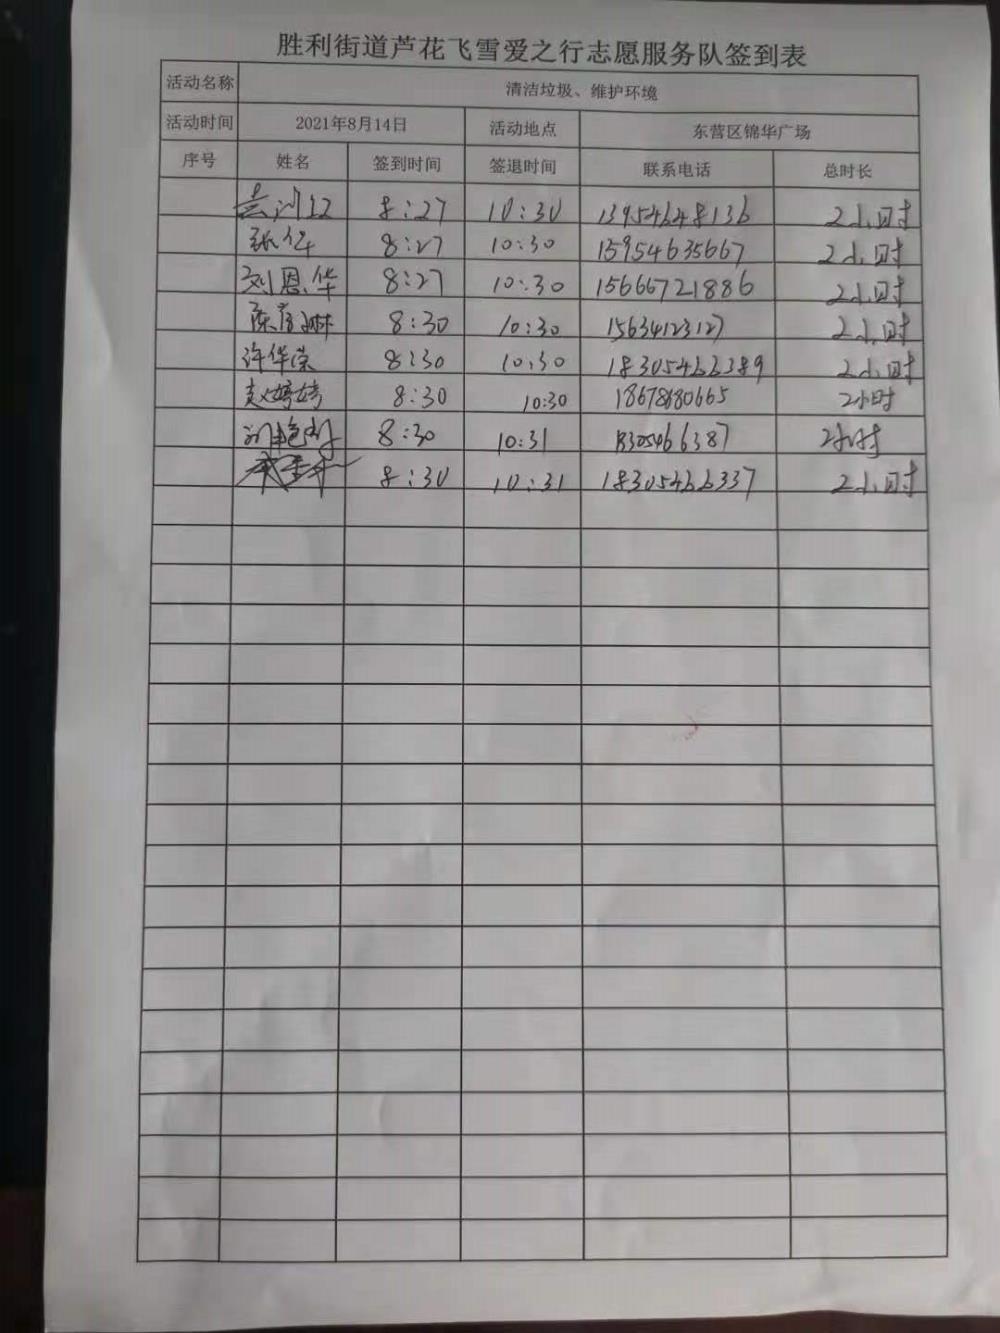 胜利街道芦花飞雪爱之行志愿服务队签到表
活动名称 清洁垃圾、维护环境
活动时间 2021年8月14日 活动地点 东营区锦华广场
序号 姓名 签到时间 签退时间 联系电话 总时长
8:27 10:30 13954648136 2小时
8:27 10:30 15954635667 2小时
刘恩华 8:27 10:30 15666721886 2小时
8:30 10:30 15634123127 2小时
许华荣 8:30 10:30 18305466389 2小时
赵婷婷 8:30 10:30 2小时
8:30 10:31 18305466387 2小时
8:30 10:31 18305466337 2小时